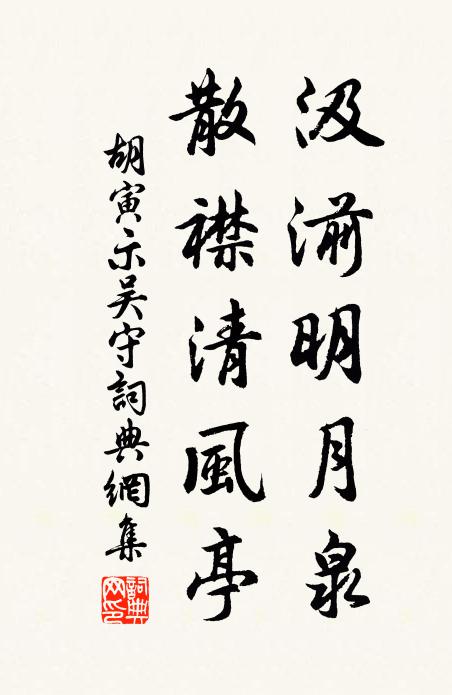 汲湔明月泉
散襟清風亭
胡寅示吴守詞典網集
詞典網印